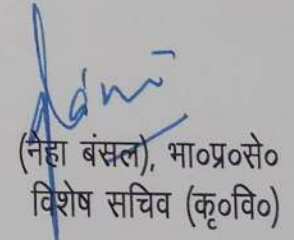 (नेहा बंसल), भा०प्र०से०
विशेष सचिव (कृ०वि०)